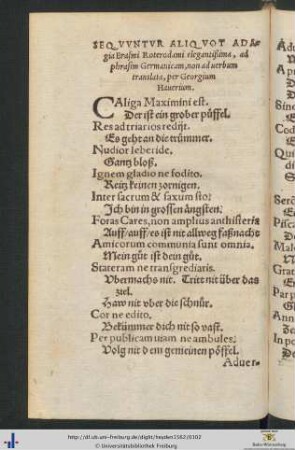 SEQVVNTVR ALIQVOT ADA-
gia Erasmi Roterodami elegantissima, ad
phrasim Germanicam, non ad verbum
translata, per Georgium
Hauerium.
CAliga Maximini est.
Der ist ein grober püffel.
Res ad triarios redijt.
Es geht an die trümmer.
Nudior leberide.
Gantz bloß.
Ignem gladio ne fodito.
Reitz keinen zornigen.
Inter sacrum & saxum sto.
Ich bin in grossen ängsten.
Foras Cares, non amplius anthisteria
Auff/auff/es ist nit allweg faßnacht
Amicorum communia sunt omnia.
Mein gůt ist dein gůt.
Stateram ne transgrediaris.
Vbermachs nit. Tritt nit über das
ziel.
Haw nit vber die schnůr.
Cor ne edito.
Bekümmer dich nit so vast.
Per publicam uiam ne ambules.
Volg nit dem gemeinen pöffel.
Aduer-
http://dl.ub.uni-freiburg.de/diglit/heyden1562/0102
© Universitätsbibliothek Freiburg
Baden-Württemberg